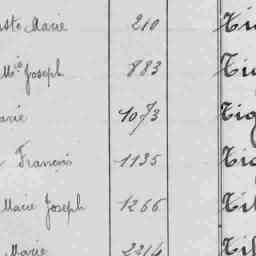 uste Marie 210 Tie
Mie Joseph 883 Tie
arie 1073 Tig
François 1135 Tig
Marie Joseph 1266 Til
Marie 2214 Til